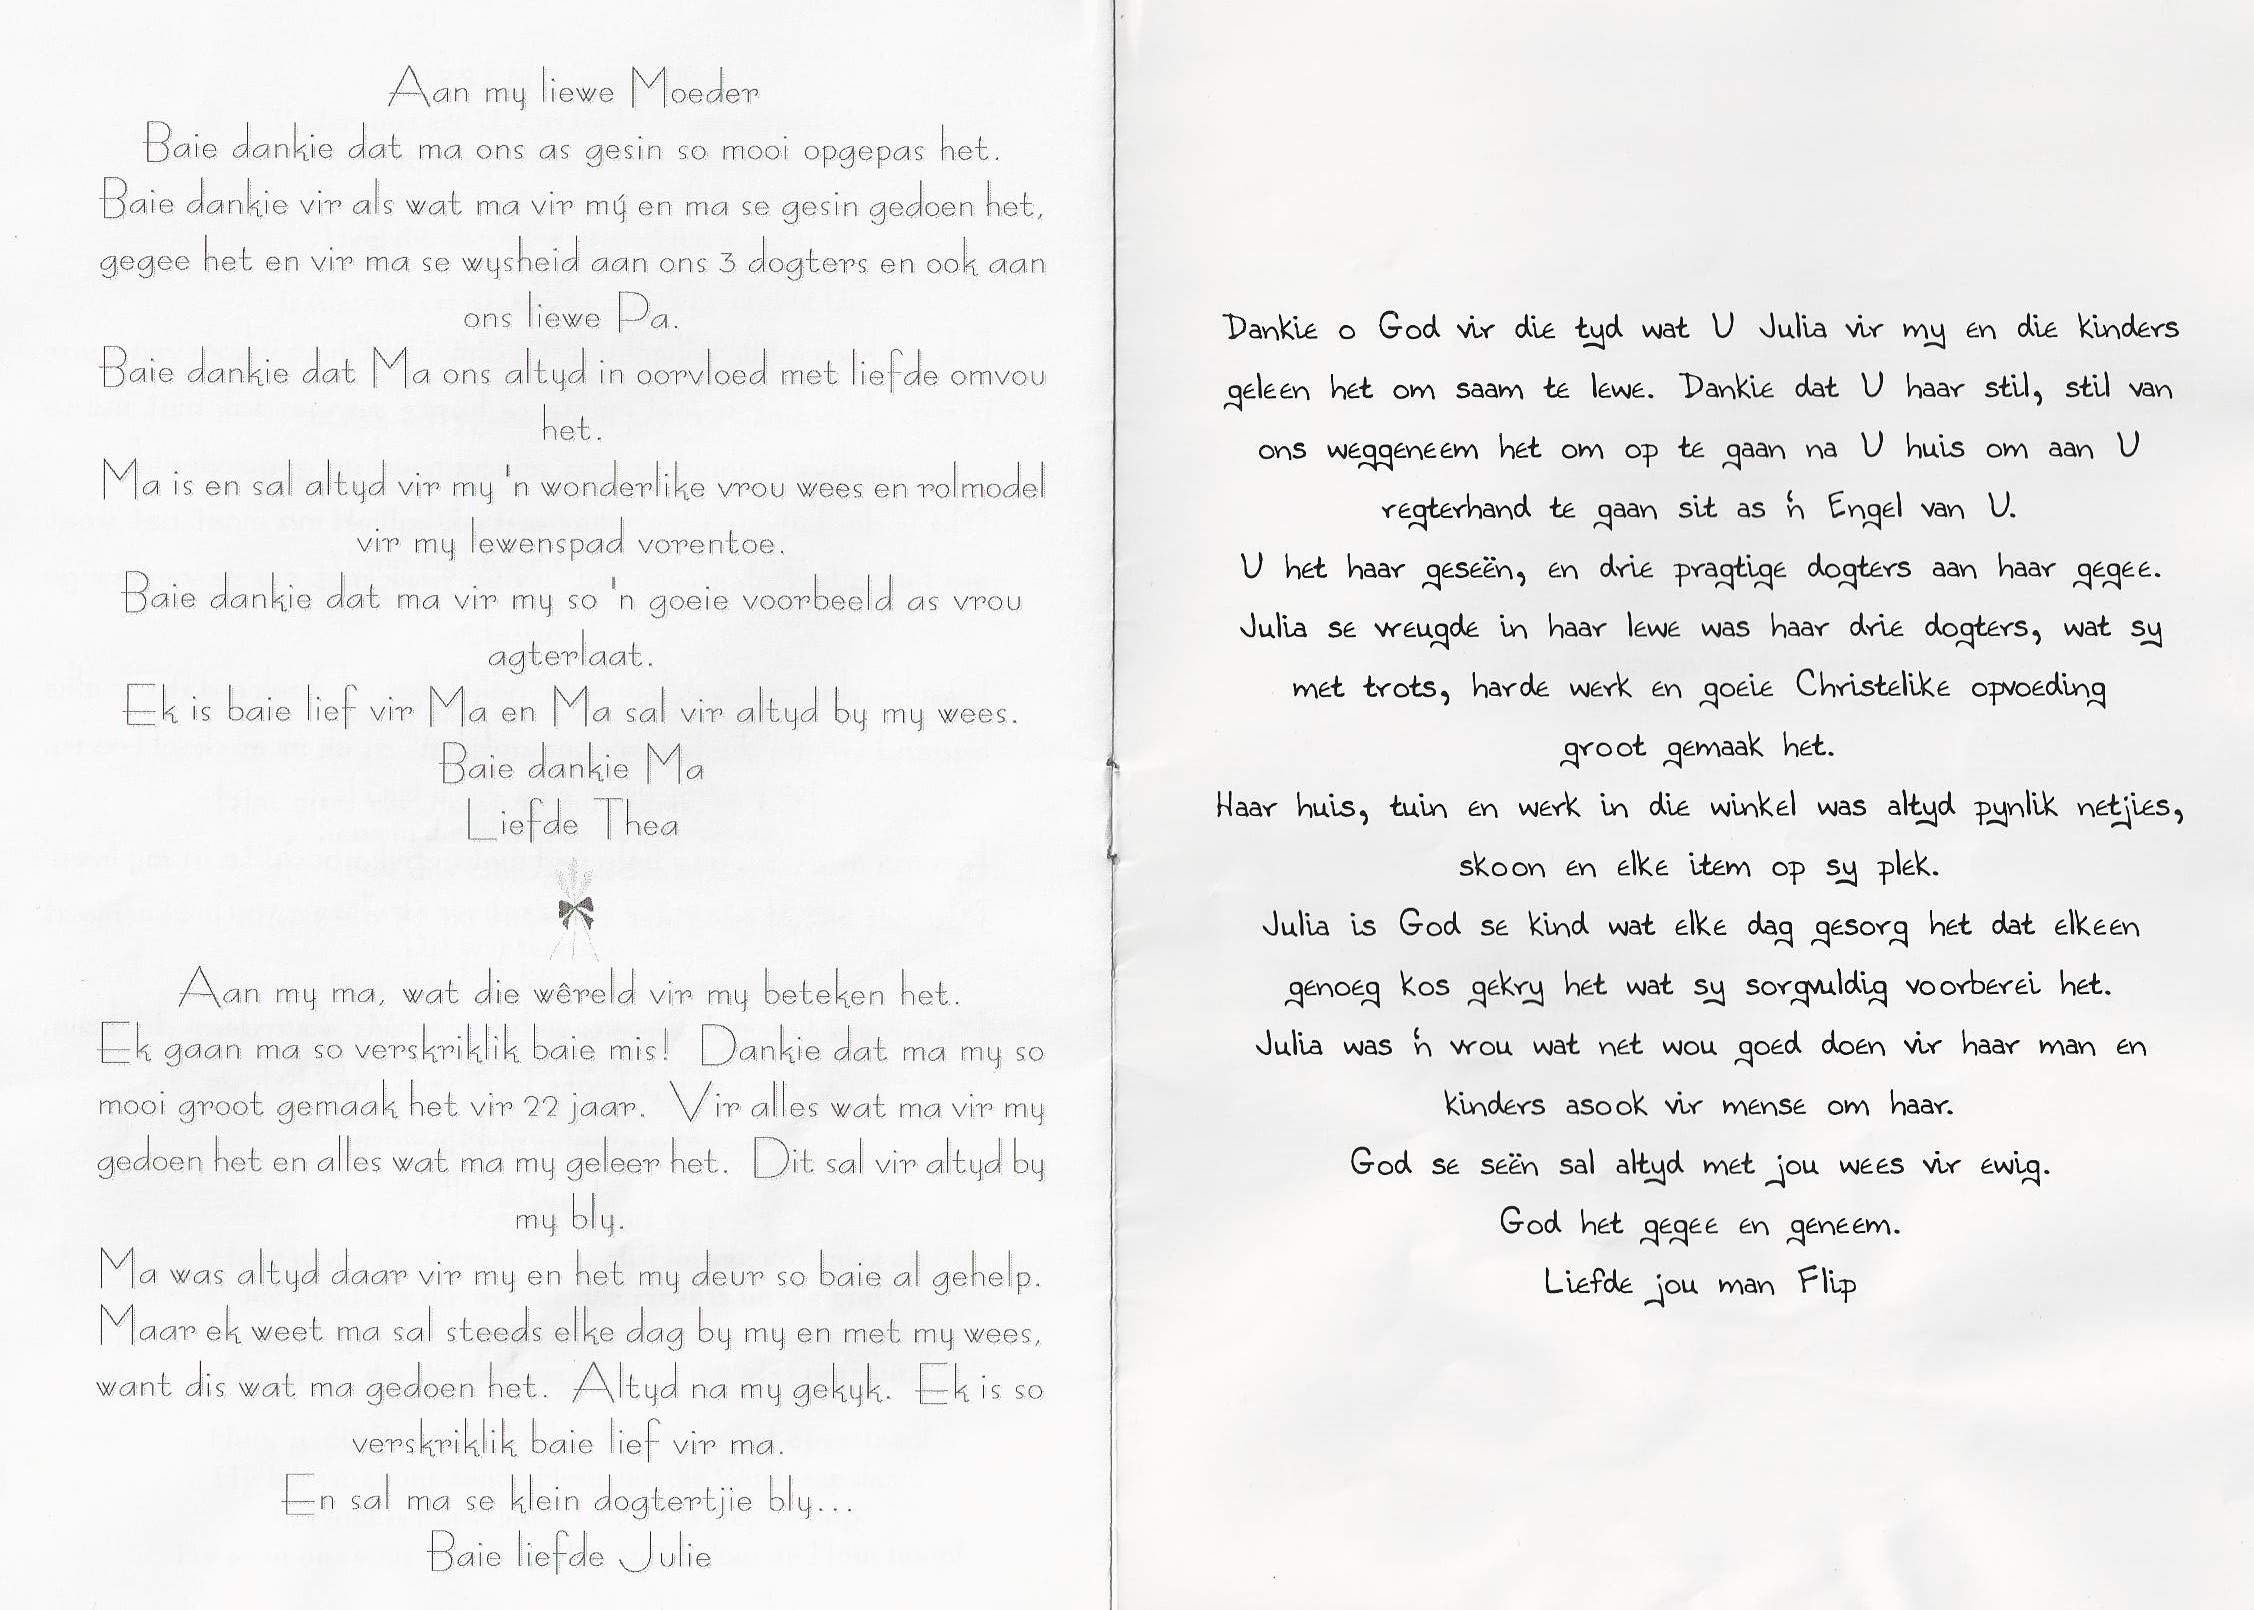 Aan my liewe Moeder
Baie dankie dat ma ons as gesin so mooi opgepas het.
Baie dankie vir als wat ma vir mý en ma se gesin gedoen het,
gegee het en vir ma se wysheid aan ons 3 dogters en ook aan
ons liewe Pa.
Baie dankie dat Ma ons altyd in oorvloed met liefde omvou
het.
Ma is en sal altyd vir my 'n wonderlike vrou wees en rolmodel
vir my lewenspad vorentoe.
Baie dankie dat ma vir my so 'n goeie voorbeeld as vrou
agterlaat.
Ek is baie lief vir Ma en Ma sal vir altyd by my wees.
Baie dankie Ma
Liefde Thea
Aan my ma, wat die wêreld vir my beteken het.
Ek gaan ma so verskriklik baie mis! Dankie dat ma my so
mooi groot gemaak het vir 22 jaar. Vir alles wat ma vir my
gedoen het en alles wat ma my geleer het. Dit sal vir altyd by
my bly.
Ma was altyd daar vir my en het my deur so baie al gehelp.
Maar ek weet ma sal steeds elke dag by my en met my wees,
want dis wat ma gedoen het. Altyd na my gekyk. Ek is so
verskriklik baie lief vir ma.
En sal ma se klein dogtertjie bly...
Baie liefde Julie
Dankie o God vir die tyd wat U Julia vir my en die kinders
geleen het om saam te lewe. Dankie dat U haar stil, stil van
ons weggeneem het om op te gaan na U huis om aan U
regterhand te gaan sit as 'n Engel van U.
U het haar geseën, en drie pragtige dogters aan haar gegee.
Julia se vreugde in haar lewe was haar drie dogters, wat sy
met trots, harde werk en goeie Christelike opvoeding
groot gemaak het.
Haar huis, tuin en werk in die winkel was altyd pynlik netjies,
skoon en elke item op sy plek.
Julia is God se kind wat elke dag gesorg het dat elkeen
genoeg kos gekry het wat sy sorgvuldig voorberei het.
Julia was 'n vrou wat net wou goed doen vir haar man en
kinders asook vir mense om haar.
God se seën sal altyd met jou wees vir ewig.
God het gegee en geneem.
Liefde jou man Flip